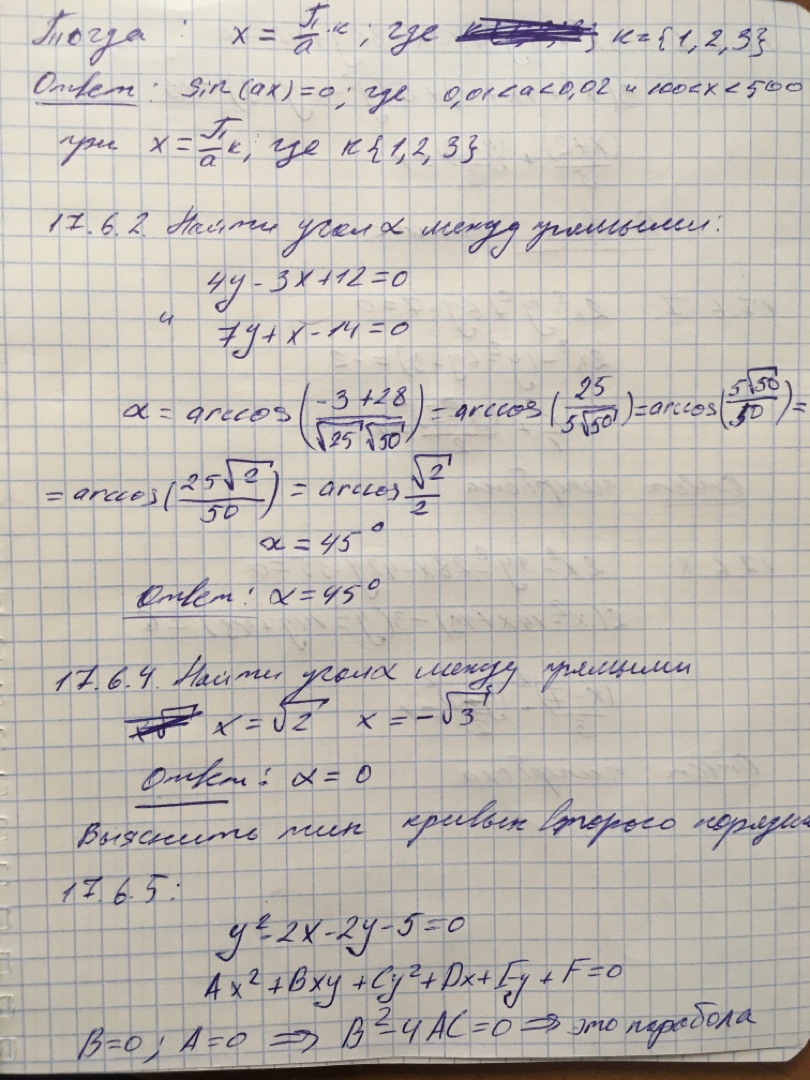 Тогда : x = П/a · к ; где к = {1, 2, 3}
Ответ : sin(ax) = 0 ; где 0,01 < a < 0,02 и 100 < x < 500
при x = П/a к, где к {1, 2, 3}
17.6.2. Найти угол α между прямыми:
4y - 3x + 12 = 0
и
7y + x - 14 = 0
α = arccos((-3 + 28)/(√25 √50)) = arccos(25/(5√50)) = arccos(5√50/50) =
= arccos(25√2/50) = arccos √2/2
α = 45°
Ответ : α = 45°
17.6.4. Найти угол α между прямыми
x = √2 x = -√3
Ответ : α = 0
Выяснить тип кривых второго
17.6.5 :
y² - 2x - 2y - 5 = 0
Ax² + Bxy + Cy² + Dx + Ey + F = 0
B = 0 ; A = 0 ⇒ B² - 4AC = 0 ⇒ это парабола